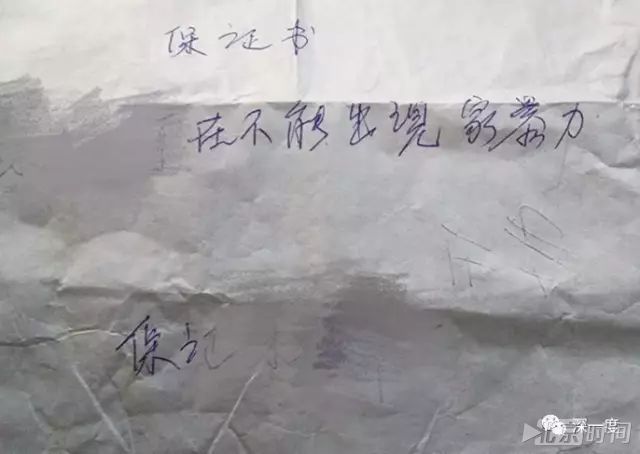 保证书
在不能出现家暴力
保证
深一度
北京时间